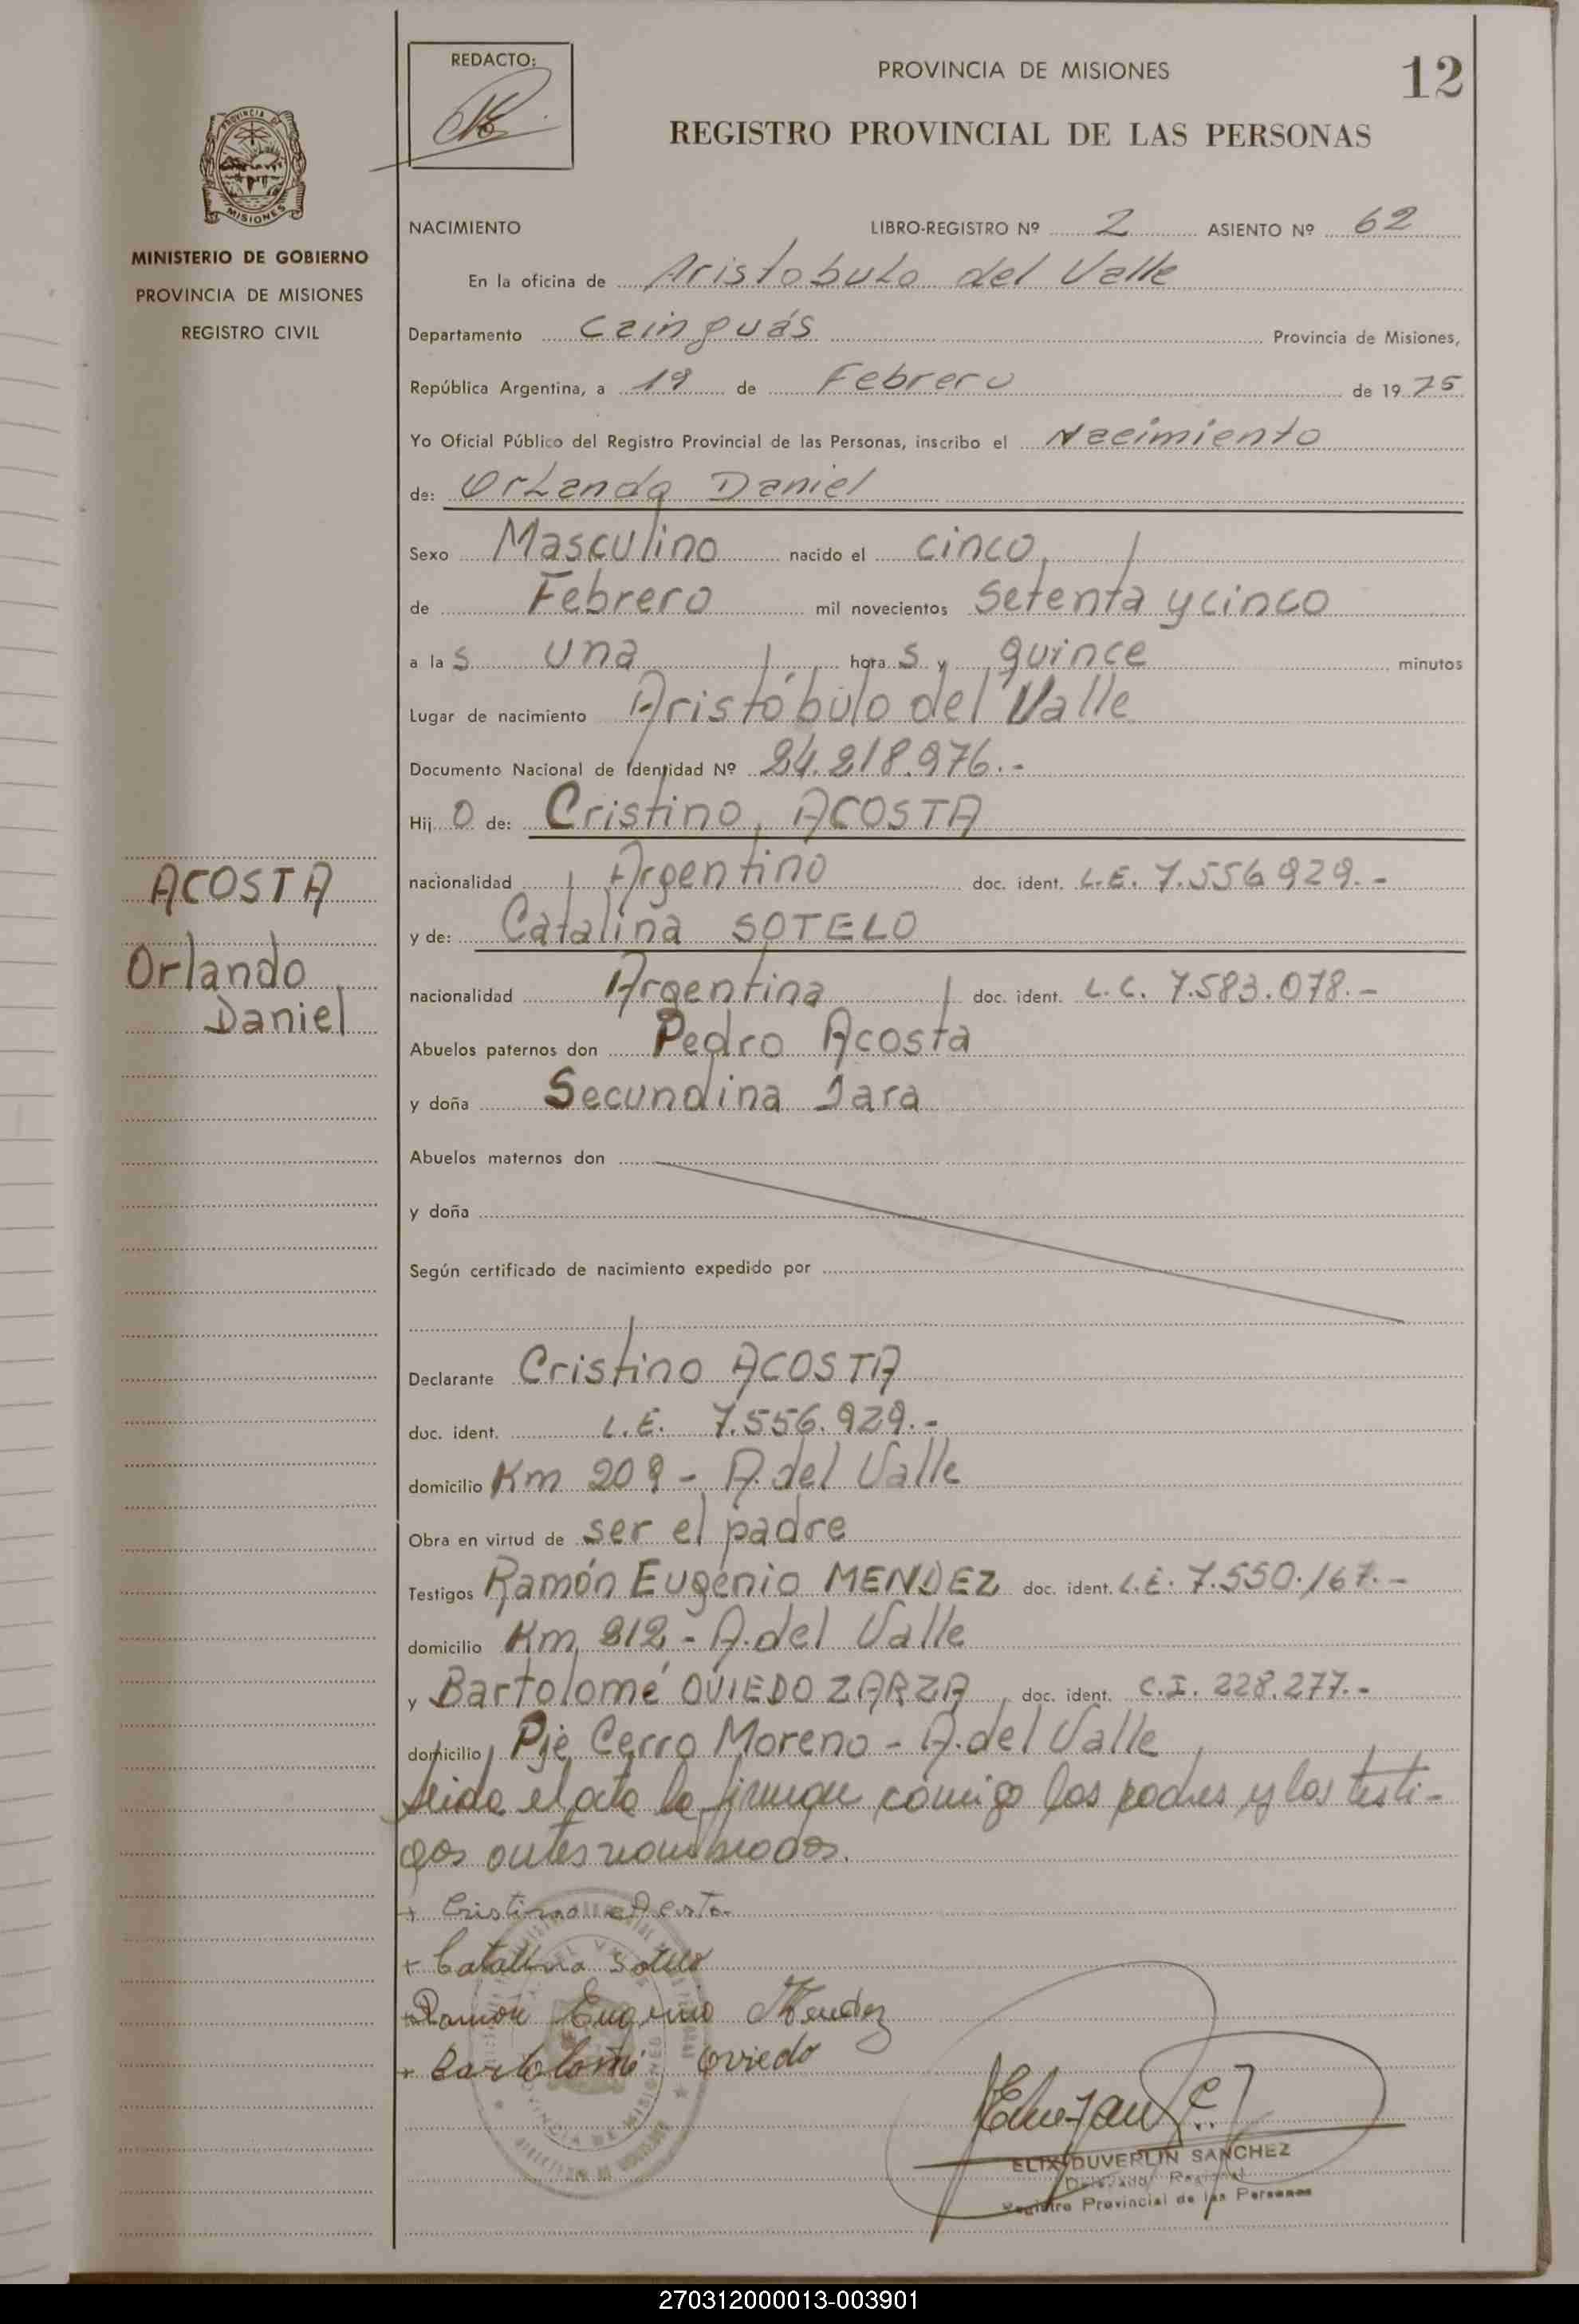 REDACTO:
PROVINCIA DE MISIONES
12
REGISTRO PROVINCIAL DE LAS PERSONAS
PROVINCIA DE
MISIONES
MINISTERIO DE GOBIERNO
PROVINCIA DE MISIONES
REGISTRO CIVIL
NACIMIENTO LIBRO-REGISTRO Nº 2 ASIENTO Nº 62
En la oficina de Aristobulo del Valle
Departamento Cainguás Provincia de Misiones,
República Argentina, a 19 de Febrero de 1975
Yo Oficial Público del Registro Provincial de las Personas, inscribo el Nacimiento
de: Orlando Daniel
Sexo Masculino nacido el cinco
de Febrero mil novecientos setenta y cinco
a las una horas y quince minutos
Lugar de nacimiento Aristóbulo del Valle
Documento Nacional de Identidad Nº 24.218.976.-
Hijo de: Cristino ACOSTA
nacionalidad Argentino doc. ident. L.E. 7.556929.-
y de: Catalina SOTELO
nacionalidad Argentina doc. ident. L.C. 7.583.078.-
Abuelos paternos don Pedro Acosta
y doña Secundina Jara
Abuelos maternos don
y doña
Según certificado de nacimiento expedido por
ACOSTA
Orlando
Daniel
Declarante Cristino ACOSTA
doc. ident. L.E. 7.556.929.-
domicilio Km 209 - A. del Valle
Obra en virtud de ser el padre
Testigos Ramón Eugenio MENDEZ doc. ident. L.E. 7.550.167.-
domicilio Km 212 - A. del Valle
y Bartolomé OVIEDO ZARZA doc. ident. C.I. 228.277.-
domicilio Pje Cerro Moreno - A. del Valle
Leida el acta la firman comigo los padres y los testi-
gos antes nombrados.
+ Cristino Acosta
+ Catalina Sotelo
+ Ramon Eugenio Mendez
+ Bartolomé Oviedo
ELIX DUVERLIN SANCHEZ
Delegado Regional
Registro Provincial de las Personas
270312000013-003901